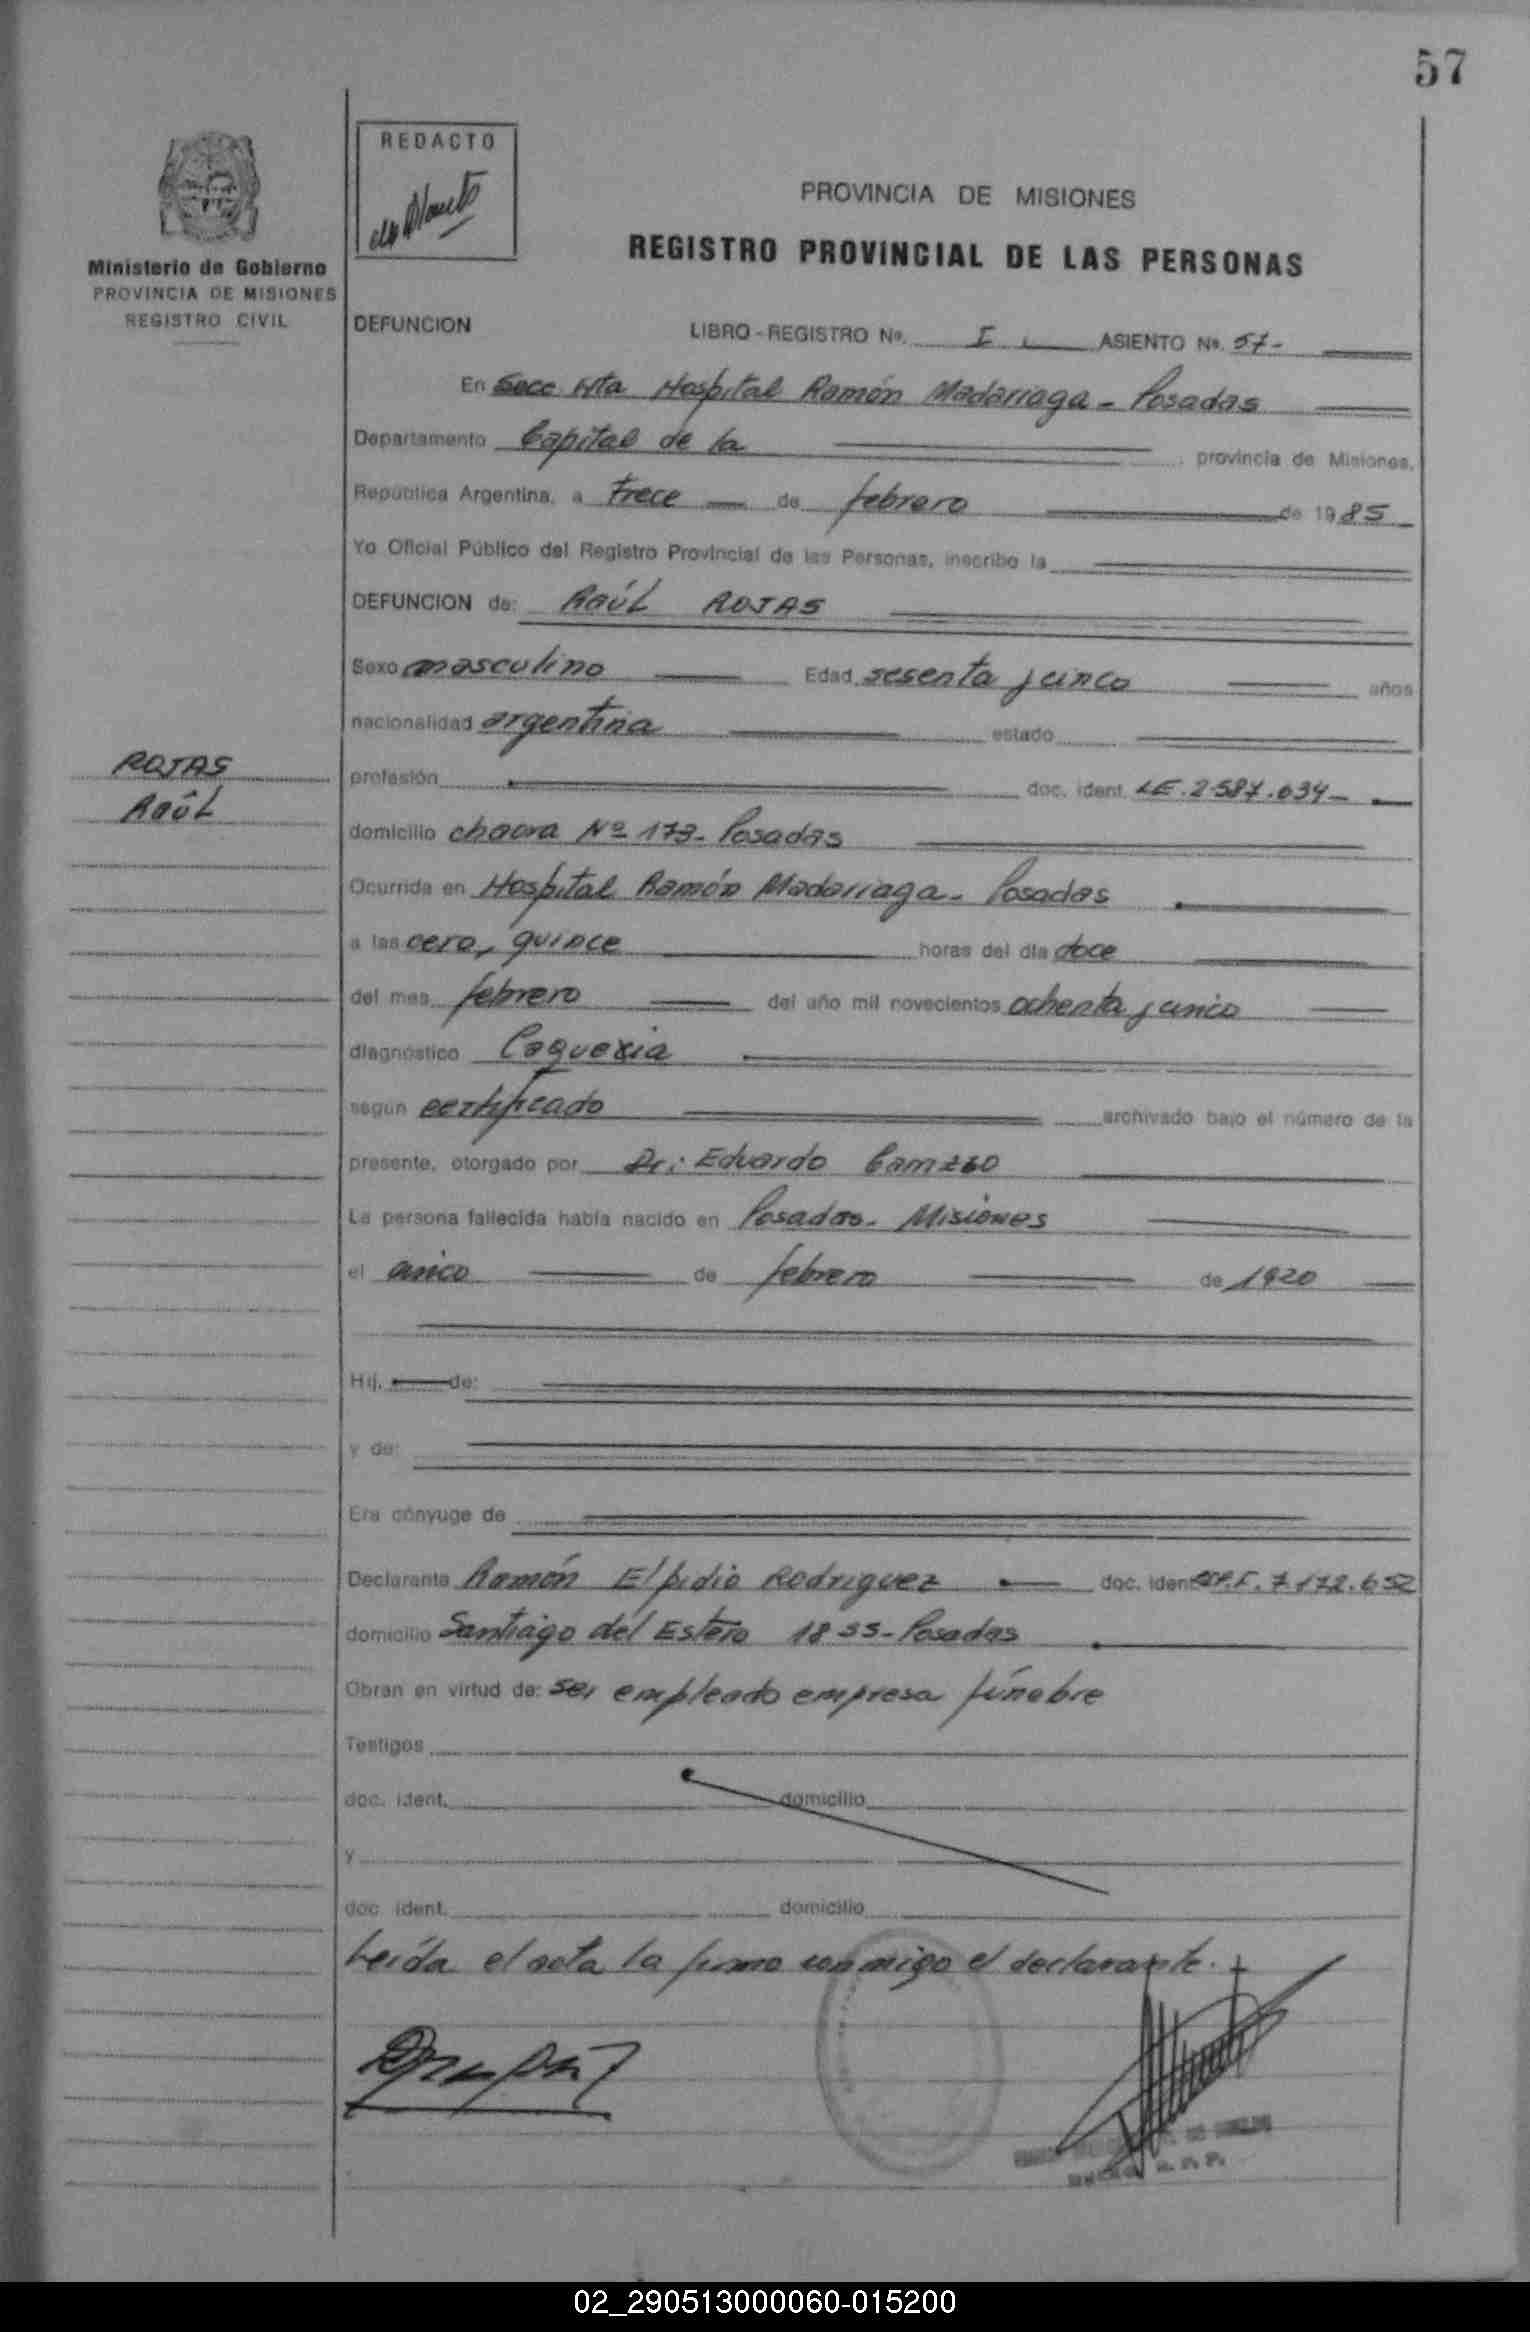 57
REDACTO
PROVINCIA DE MISIONES
REGISTRO PROVINCIAL DE LAS PERSONAS
Ministerio de Gobierno
PROVINCIA DE MISIONES
REGISTRO CIVIL
DEFUNCION LIBRO-REGISTRO Nº. I ASIENTO Nº. 57-
En Secc. Hospital Ramón Madariaga - Posadas
Departamento Capital de la provincia de Misiones,
República Argentina, a trece de febrero de 1985
Yo Oficial Público del Registro Provincial de las Personas, inscribo la
DEFUNCION de: RAÚL ROJAS
Sexo masculino Edad sesenta y cinco años
nacionalidad argentina estado
ROJAS
RAÚL
profesión doc. ident. LE. 2.587.034-
domicilio chacra Nº 173- Posadas
Ocurrida en Hospital Ramón Madariaga- Posadas
a las cero, quince horas del día doce
del mes febrero del año mil novecientos ochenta y cinco
diagnóstico Caquexia
según certificado archivado bajo el número de la
presente, otorgado por Dr: Eduardo
La persona fallecida había nacido en Posadas- Misiones
el cinco de febrero de 1920
Hij. de:
y de:
Era cónyuge de
Declarante Ramón Elpidio Rodriguez doc. ident. 7.172.652
domicilio Santiago del Estero 1833- Posadas
Obran en virtud de: ser empleado empresa fúnebre
Testigos
doc. ident. domicilio
y
doc. ident. domicilio
Leída el acta la firma conmigo el declarante.-
02_290513000060-015200